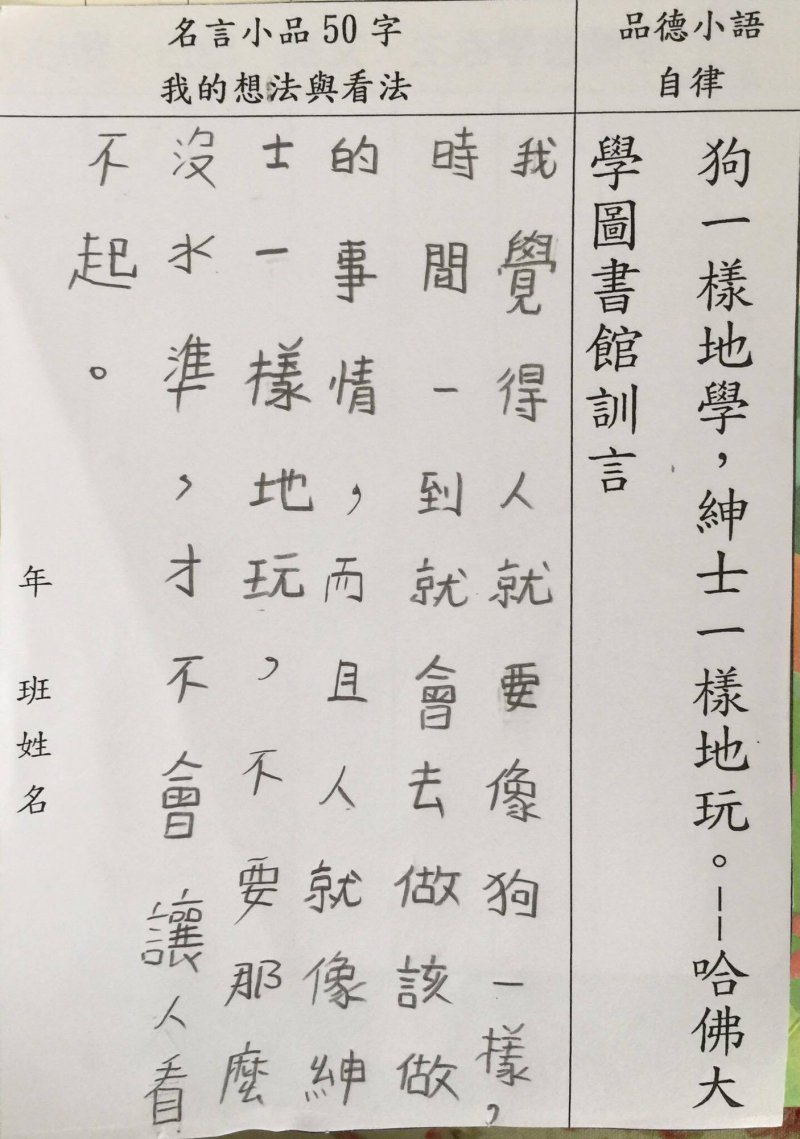 品德小語
自律
狗一樣地學，紳士一樣地玩。--哈佛大
學圖書館訓言
名言小品50字
我的想法與看法
我覺得人就要像狗一樣，
時間一到就會去做該做
的事情，而且人就像紳
士一樣地玩，不要那麼
沒水準，才不會讓人看
不起。
年 班姓名